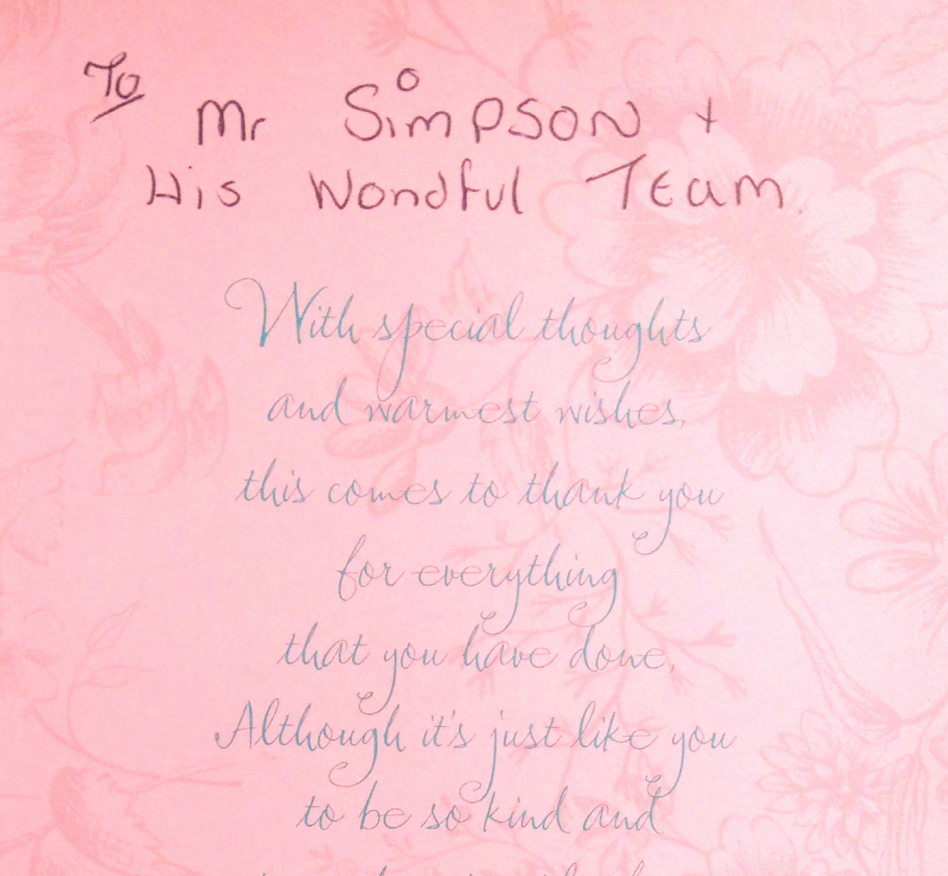 To
Mr Simpson +
His Wondful Team.
With special thoughts
and warmest wishes,
this comes to thank you
for everything
that you have done,
Although it's just like you
to be so kind and